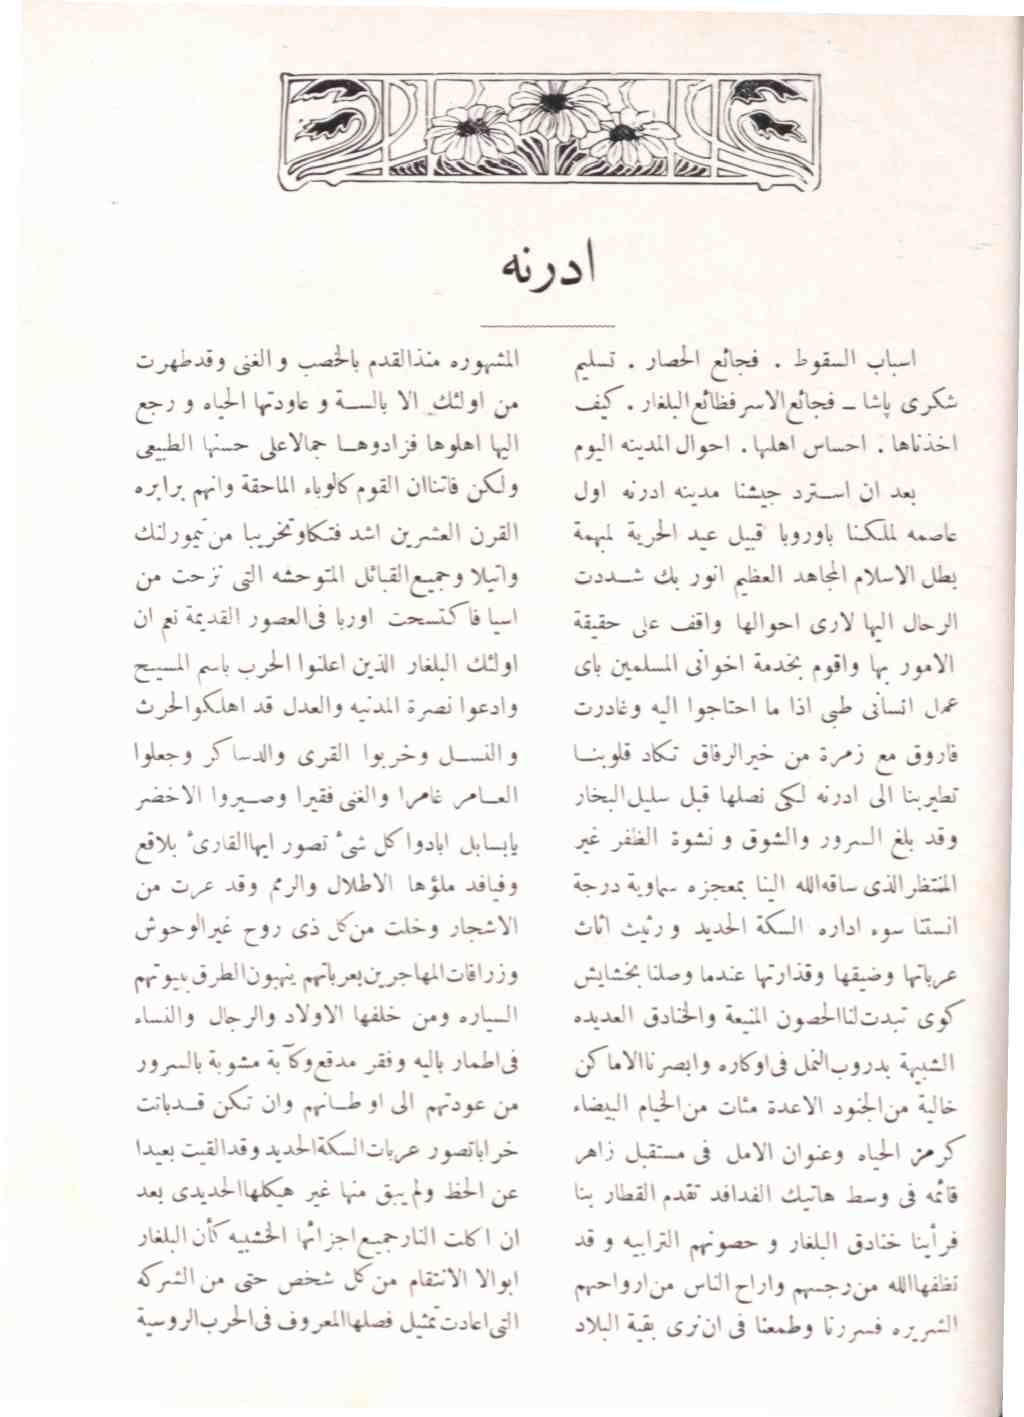 ادرنه
اسباب السقوط . فجائع الحصار . تسليم
شكرى پاشا ــ فجائع الاسر فظائع البلغار . كيف
اخذناها . احساس اهلها . احوال المدينه اليوم
بعد ان استرد جيشنا مدينه ادرنه اول
عاصمه لملكنا باوروبا قبيل عيد الحرية لمهمة
بطل الاسلام المجاهد العظيم انور بك شددت
الرحال اليها لارى احوالها واقف على حقيقة
الامور بها واقوم بخدمة اخوانى المسلمين باى
عمل انسانى طبى اذا ما احتاجوا اليه وغادرت
فاروق مع زمرة من خير الرفاق تكاد قلوبنا
تطير بنا الى ادرنه لكى نصلها قبل سليل البخار
وقد بلغ السرور والشوق و نشوة الظفر غير
المنتظر الذى ساقه الله الينا بمعجزه سماوية درجة
انستنا سوء اداره السكة الحديد و رئيث اثاث
عرباتها وضيقها وقذارتها عندما وصلنا بخشايش
كوى تبدت لنا الحصون المنيعة والخنادق العديده
الشبيهة بدروب النمل فى اوكاره وابصرنا الاماكن
خالية من الجنود الاعدة مئات من الخيام البيضاء
كرمز الحياه وعنوان الامل فى مستقبل زاهر
قائمه فى وسط هاتيك الفدافد تقدم القطار بنا
فرأينا خنادق البلغار و حصونهم الترابيه و قد
نظفها الله من رجسهم واراح الناس من ارواحهم
الشريره فسررنا وطمعنا فى ان نرى بقية البلاد
المشهوره منذ القدم بالخصب و الغنى وقد طهرت
من اولئك الا بالسة و عاودتها الحياه و رجع
اليها اهلوها فزادوها جمالا على حسنها الطبيعى
ولكن فاتنا ان القوم كالوباء الماحقة وانهم برابره
القرن العشرين اشد فتكا وتخريبا من تيمورلنك
واتيلا وجميع القبائل المتوحشه التى نزحت من
اسيا فاكتسحت اوربا فى العصور القديمة نعم ان
اولئك البلغار الذين اعلنوا الحرب باسم المسيح
وادعوا نصرة المدنيه والعدل قد اهلكوا الحرث
والنسل وخربوا القرى والدساكر وجعلوا
العامر غامرا والغنى فقيرا وصيروا الاخضر
يابسا بل ابادوا كل شئ تصور ايها القارئ بلاقع
وفيافد ملؤها الاطلال والرمم وقد عرت من
الاشجار وخلت من كل ذى روح غير الوحوش
وزرافات المهاجرين بعرباتهم ينهبون الطرق ببيوتهم
السياره ومن خلفها الاولاد والرجال والنساء
فى اطمار باليه وفقر مدقع وكآبة مشوبة بالسرور
من عودتهم الى اوطانهم وان تكن قد باتت
خرابا تصور عربات السكة الحديد وقد القيت بعيدا
عن الخط ولم يبق منها غير هيكلها الحديدى بعد
ان اكلت النار جميع اجزائها الخشبيه كأن البلغار
ابوالا الانتقام من كل شخص حتى من الشركه
التى اعادت تمثيل فصلها المعروف فى الحرب الروسية